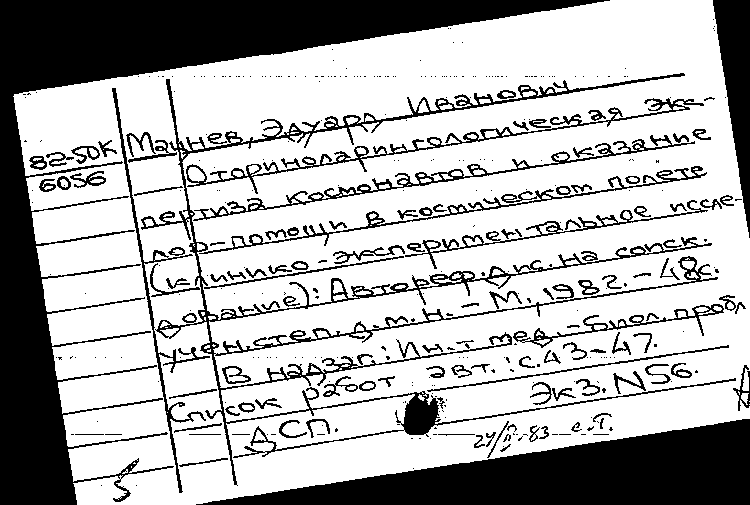 82-50К
6056
Мацнев, Эдуард Иванович
Оториноларингологическая экс-
пертиза космонавтов и оказание
лор-помощи в космическом полете
(клинико-экспериментальное иссле-
дование): Автореф. дис. на соиск.
учен. степ. д.м.н. - М., 1982. - 48с.
В надзаг: Ин-т мед.-биол. пробл
Список работ авт.: с.43-47.
ДСП. Экз. N56.
24/II-83 с.П.
5